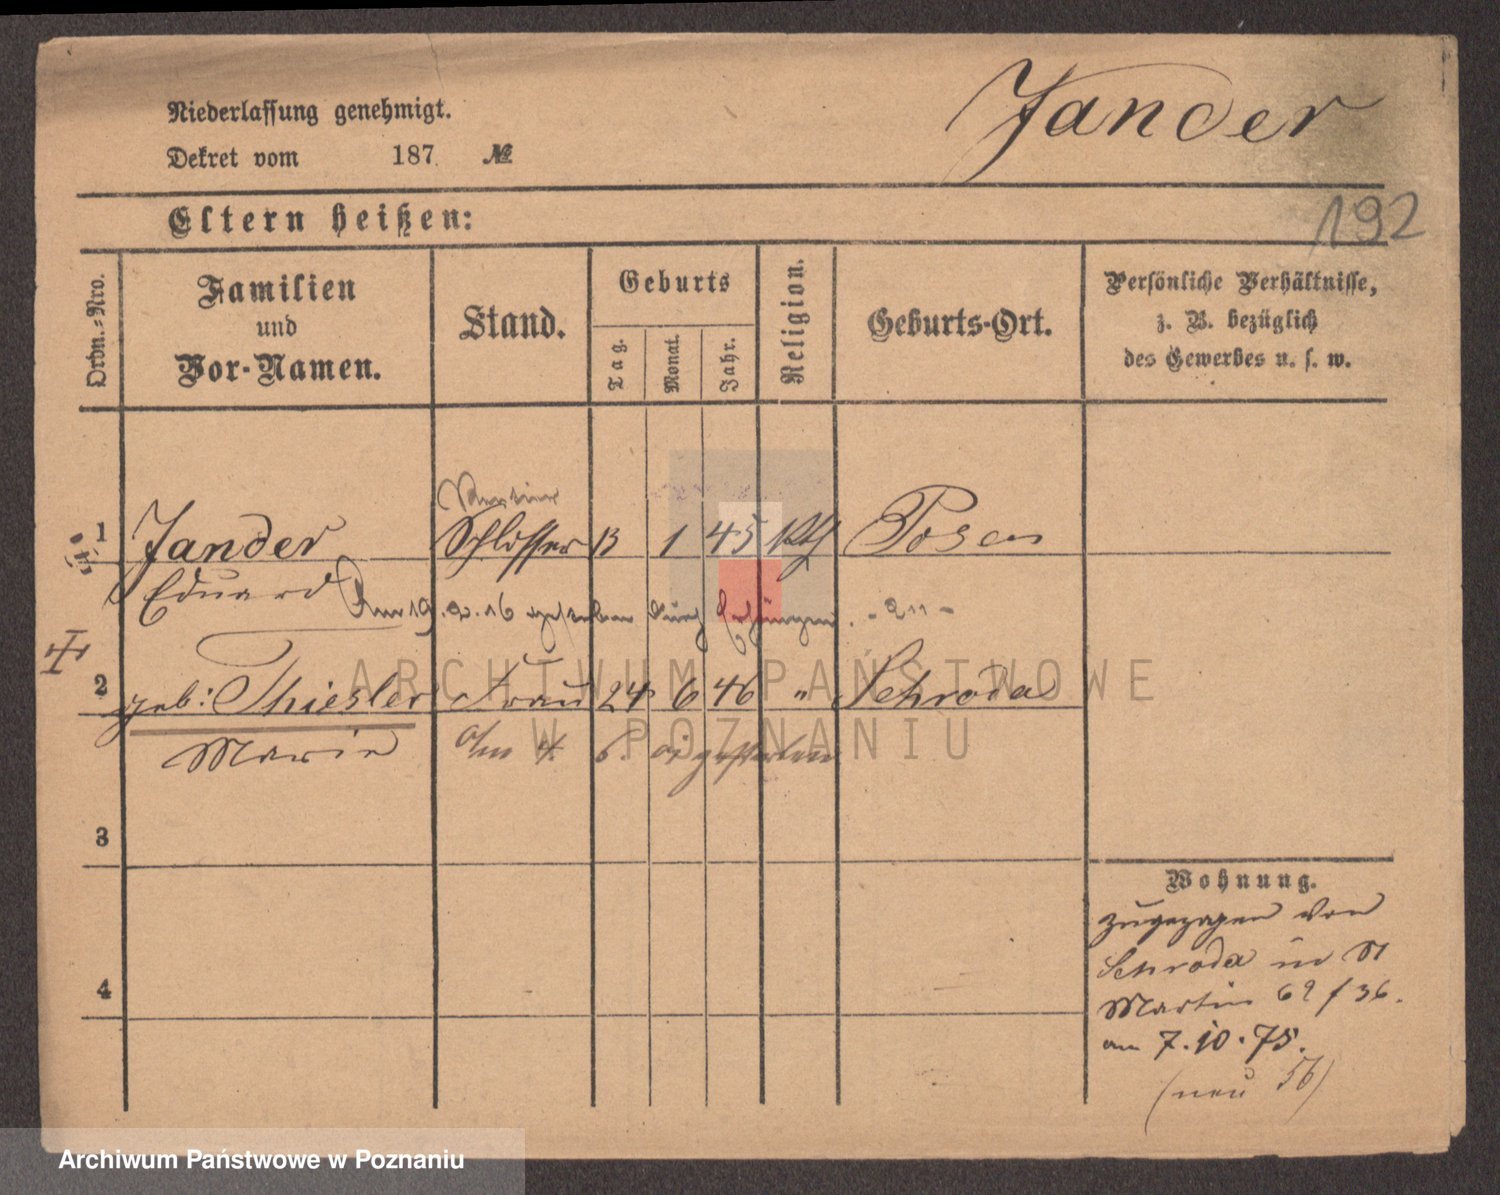 Jander
Niederlassung genehmigt.
Dekret vom 187 №
192
Eltern heißen:
Ordn.=Nro.
Familien
und
Vor-Namen.
Stand.
Geburts
Tag.
Monat.
Jahr.
Religion.
Geburts-Ort.
Persönliche Verhältnisse,
z. B. bezüglich
des Gewerbes u. s. w.
1 Jander Schlosser 13 1 45 kth Posen
Eduard
Am 19. 2. 16 gestorben durch
2 geb: Thiesler Frau 24 6 46 " Schroda
Marie Am 4. 6. gestorben
3
4
Wohnung.
zugezogen von
Schroda in St
Martin 69/36.
am 7.10.75.
(neu 56)
ARCHIWUM PAŃSTWOWE
W POZNANIU
Archiwum Państwowe w Poznaniu